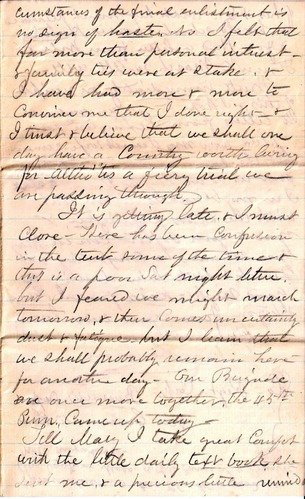 cumstances of the final enlistment is
no sign of haste. As I felt that
far more than personal interest -
& family ties were at stake. &
I have had more & more to
Convince me that I done right - &
I trust & believe that we shall one
day have a Country worth living
for - altho' its a fiery trial we
are passing through.
It is getting late. & I must
Close - There has been Confusion
in the tent some of the time &
this is a poor Sat night letter.
but I feared we might march
tomorrow, & then comes uncertainty
dust & fatigue. but I learn that
we shall probably remain here
for another day - Our Brigade
are once more together, the 45th
Penn. Came up today -
Tell Mary I take great Comfort
with the little daily text book she
sent me, & a precious little